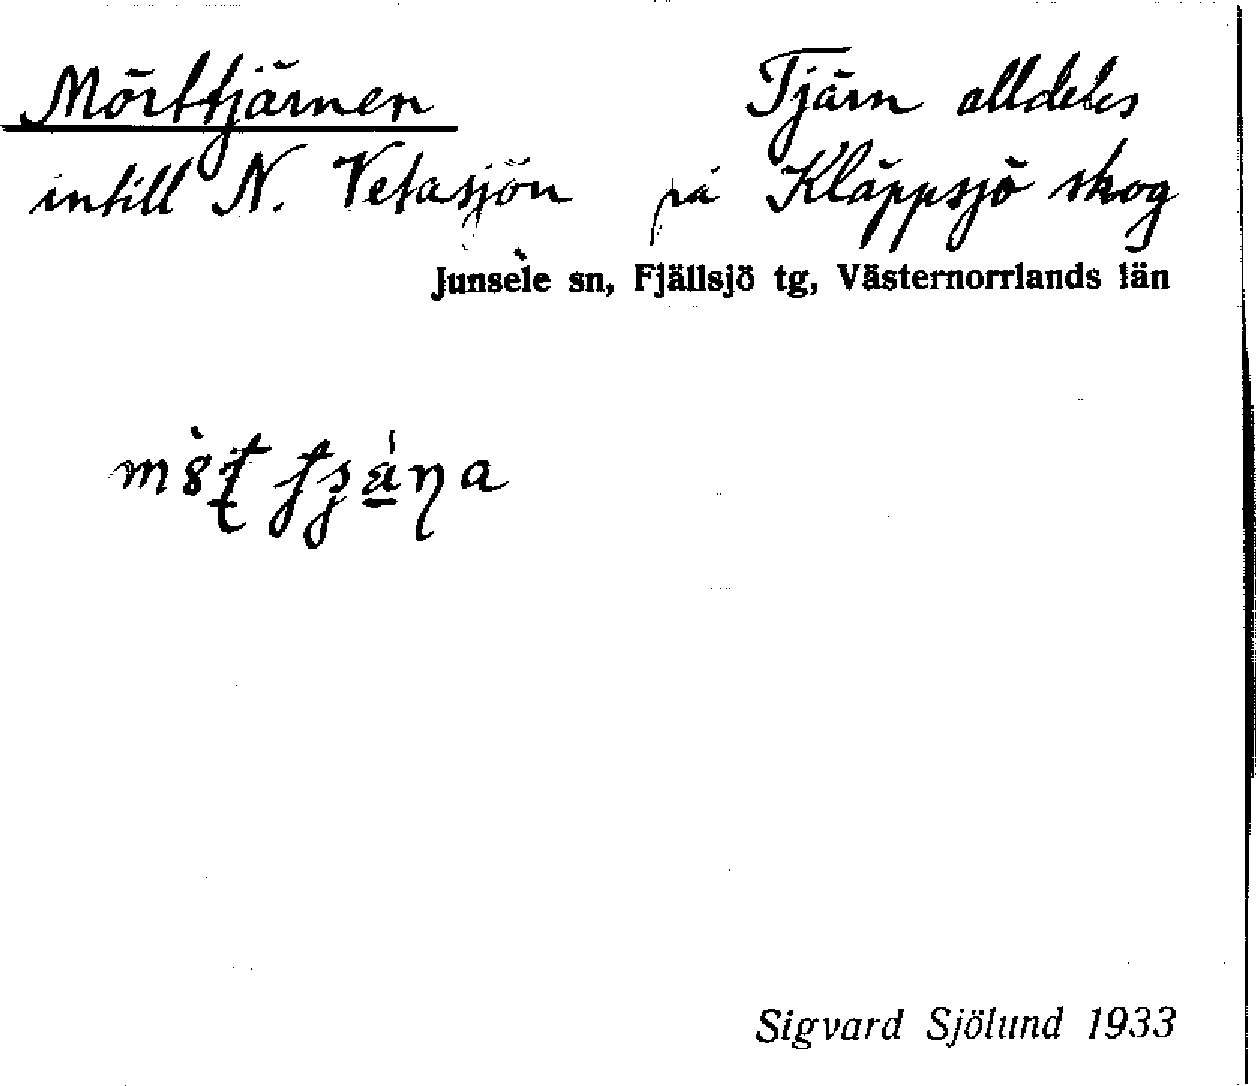 Mörttjärnen Tjärn alldeles
intill N. Vetasjön på Kläppsjö skog
Junsele sn, Fjällsjö tg, Västernorrlands län
Sigvard Sjölund 1933